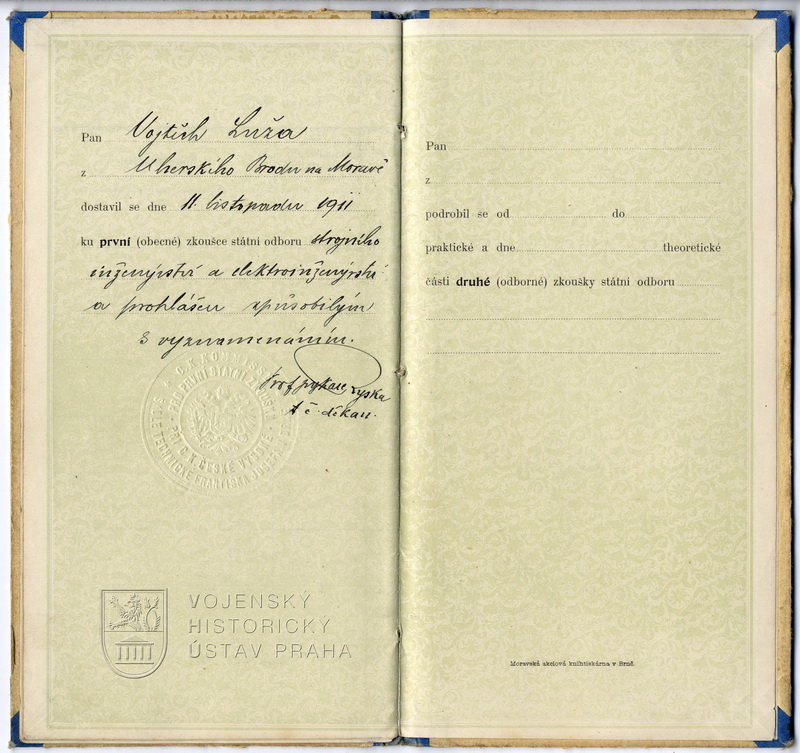 Pan Vojtěch Luža
z Uherského Brodu na Moravě
dostavil se dne 11. listopadu 1911
ku první (obecné) zkoušce státní odboru strojního
inženýrství a elektroinženýrství
a prohlášen způsobilým
s vyznamenáním.
Prof
t. č. děkan.
PRO PRVNÍ STÁTNÍ
PŘI C. K. ČESKÉ VYSOKÉ
ŠKOLE TECHNICKÉ FRANTIŠKA JOSEFA
VOJENSKÝ
HISTORICKÝ
ÚSTAV PRAHA
Pan
z
podrobil se od do
praktické a dne theoretické
části druhé (odborné) zkoušky státní odboru
Moravská akciová knihtiskárna v Brně.